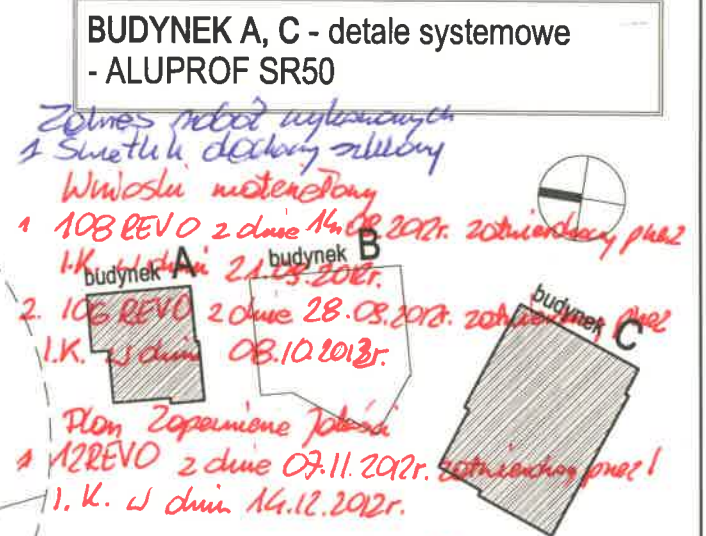 BUDYNEK A, C - detale systemowe
- ALUPROF SR50
Zakres robót wykonanych
1 Świetlik dachowy szklony
Wnioski materiałowy
1 108 REVO z dnia 14.08.2012r. zatwierdzony przez
I.K. w dniu 21.09.2012r.
budynek A
budynek B
2. 106 REVO z dnia 28.08.2012r. zatwierdzony przez
budynek C
I.K. w dniu 08.10.2012r.
Plan Zapewnienie Jakości
1 12REVO z dnia 07.11.2012r. zatwierdzony przez
I.K. w dniu 14.12.2012r.